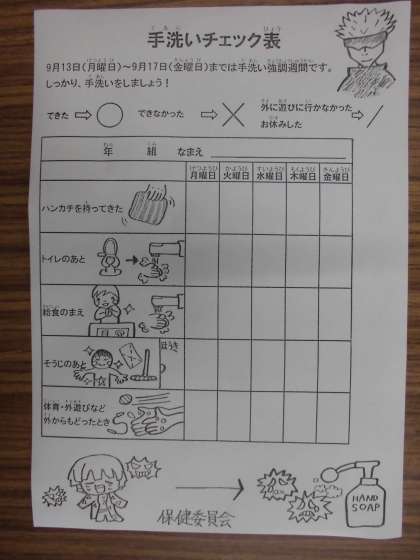 手洗いチェック表
9月13日(月曜日)～9月17日(金曜日)までは手洗い強調週間です。
しっかり、手洗いをしましょう！
できた ⇨ ○ できなかった ⇨ × 外に遊びに行かなかった ⇨ /
お休みした
年 組 なまえ
月曜日 火曜日 水曜日 木曜日 金曜日
ハンカチを持ってきた
トイレのあと
給食のまえ
そうじのあと
ほうき
体育・外遊びなど
外からもどったとき
保健委員会
HAND
SOAP